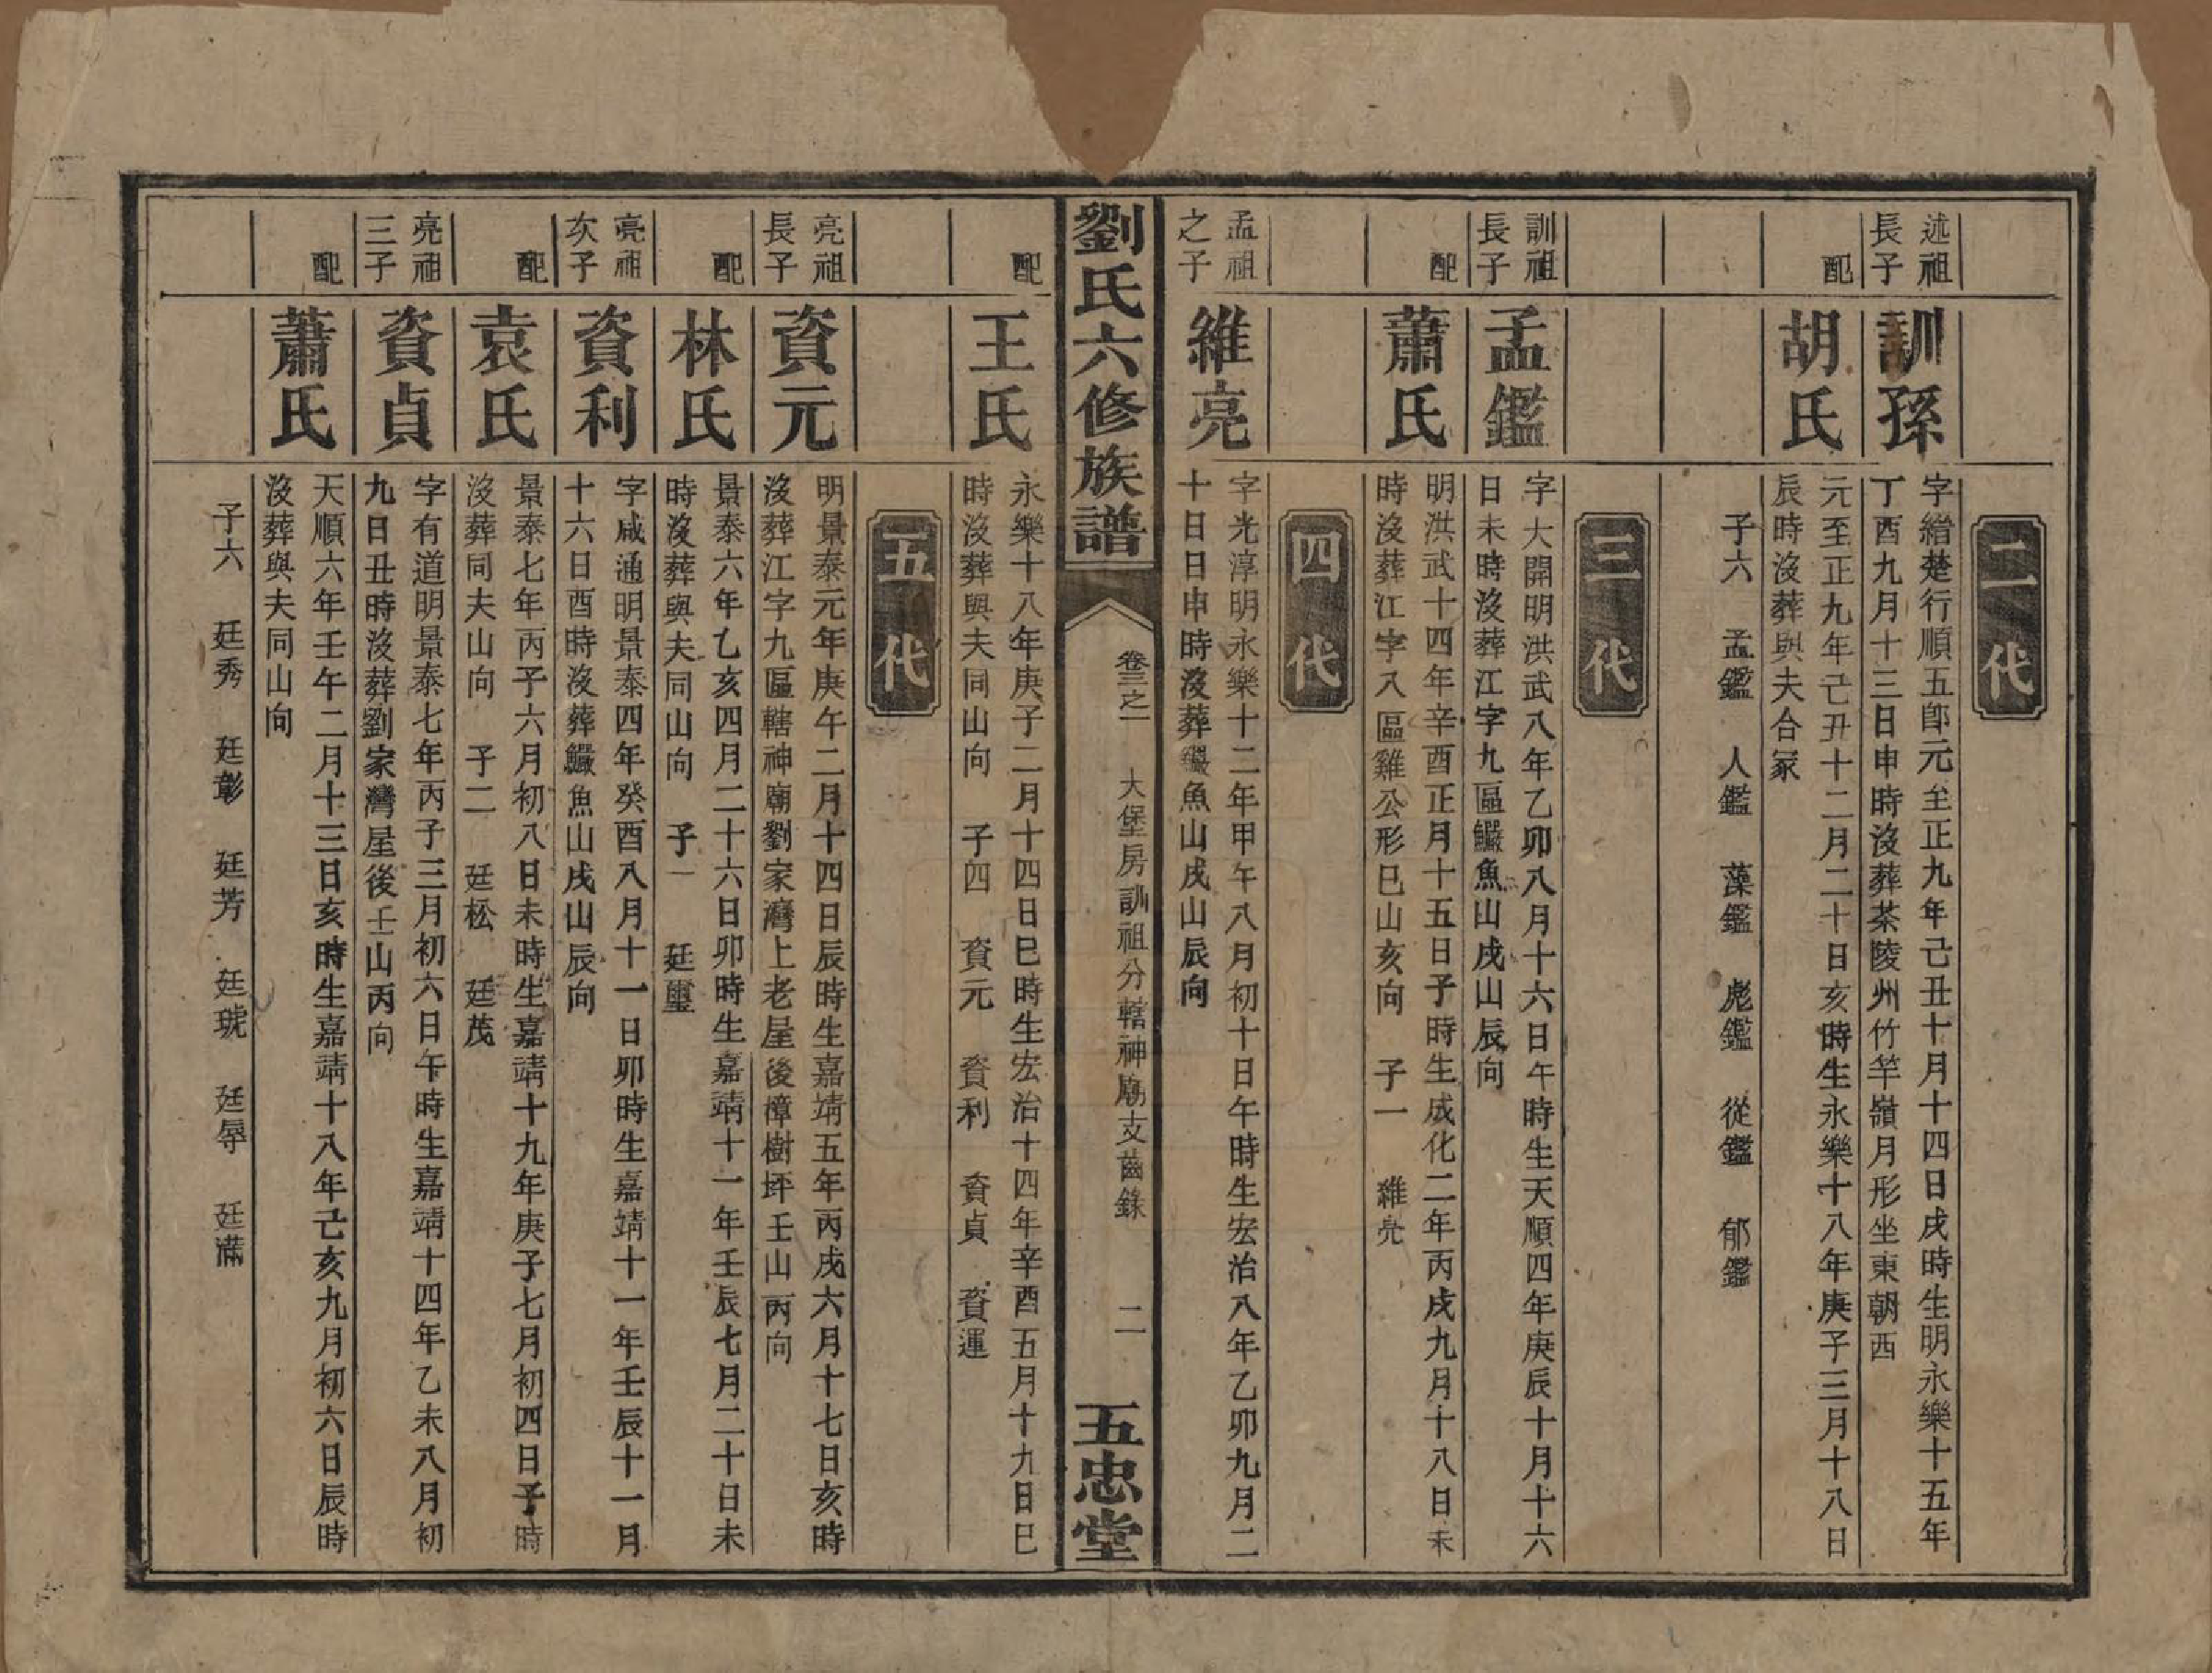 二代
述祖
長子
訓孫
字縉楚行順五郎元至正九年己丑十月十四日戌時生明永樂十五年
丁酉九月十三日申時沒葬茶陵州竹竿嶺月形坐東朝西
配
胡氏
元至正九年己丑十二月二十日亥時生永樂十八年庚子三月十八日
辰時沒葬與夫合冢
子六 孟鑑 人鑑 藻鑑 彪鑑 從鑑 郁鑑
三代
訓祖
長子
孟鑑
字大開明洪武八年乙卯八月十六日午時生天順四年庚辰十月十六
日未時沒葬江字九區鱖魚山戌山辰向
配
蕭氏
明洪武十四年辛酉正月十五日子時生成化二年丙戌九月十八日未
時沒葬江字八區雞公形巳山亥向 子一 維亮
四代
孟祖
之子
維亮
字光淳明永樂十二年甲午八月初十日午時生宏治八年乙卯九月二
十日日申時沒葬鱖魚山戌山辰向
劉氏六修族譜
卷三之一 大堡房訓祖分轄神廟支齒錄 二
五忠堂
配
王氏
永樂十八年庚子二月十四日巳時生宏治十四年辛酉五月十九日巳
時沒葬與夫同山向 子四 資元 資利 資貞 資運
五代
亮祖
長子
資元
明景泰元年庚午二月十四日辰時生嘉靖五年丙戌六月十七日亥時
沒葬江字九區轄神廟劉家灣上老屋後樟樹坪壬山丙向
配
林氏
景泰六年乙亥四月二十六日卯時生嘉靖十一年壬辰七月二十日未
時沒葬與夫同山向 子一 廷璽
亮祖
次子
資利
字咸通明景泰四年癸酉八月十一日卯時生嘉靖十一年壬辰十一月
十六日酉時沒葬鱖魚山戌山辰向
配
袁氏
景泰七年丙子六月初八日未時生嘉靖十九年庚子七月初四日子時
沒葬同夫山向 子二 廷松 廷茂
亮祖
三子
資貞
字有道明景泰七年丙子三月初六日午時生嘉靖十四年乙未八月初
九日丑時沒葬劉家灣屋後壬山丙向
配
蕭氏
天順六年壬午二月十三日亥時生嘉靖十八年己亥九月初六日辰時
沒葬與夫同山向
子六 廷秀 廷彰 廷芳 廷琥 廷辱 廷滿